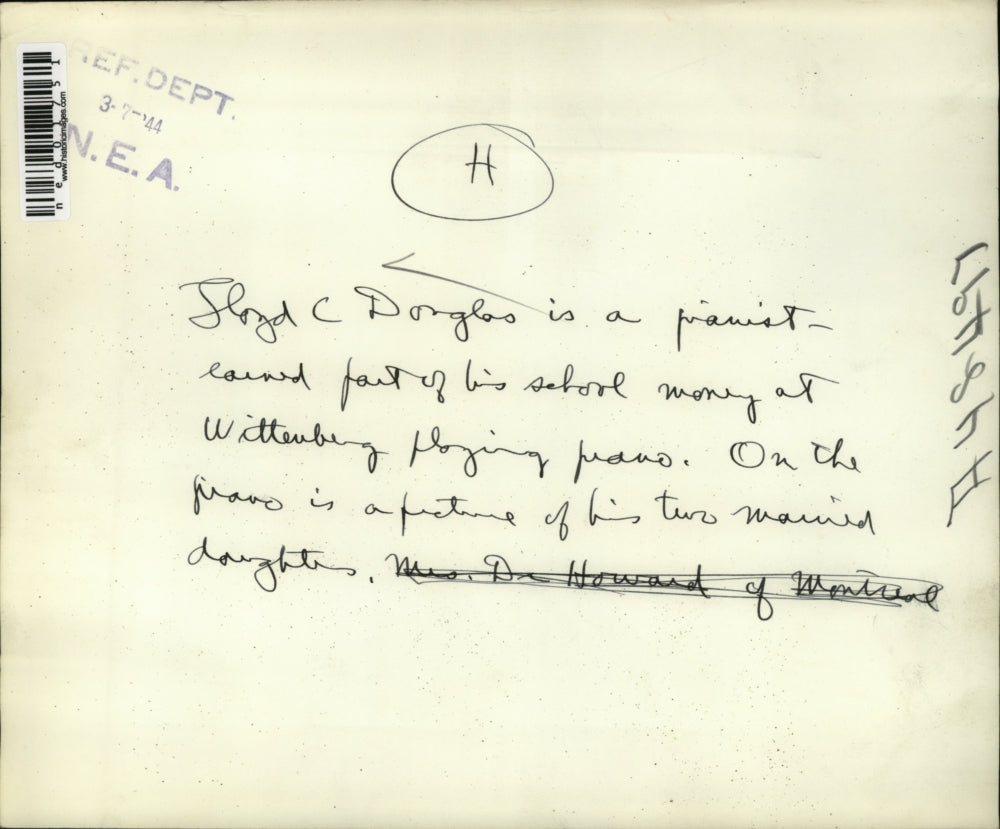 REF. DEPT.
3-7-'44
N.E.A.
www.historicimages.com
H
Lloyd C Douglas is a pianist-
earned part of his school money at
Wittenberg playing piano. On the
piano is a picture of his two married
daughters. Mrs. De Howard of Montreal